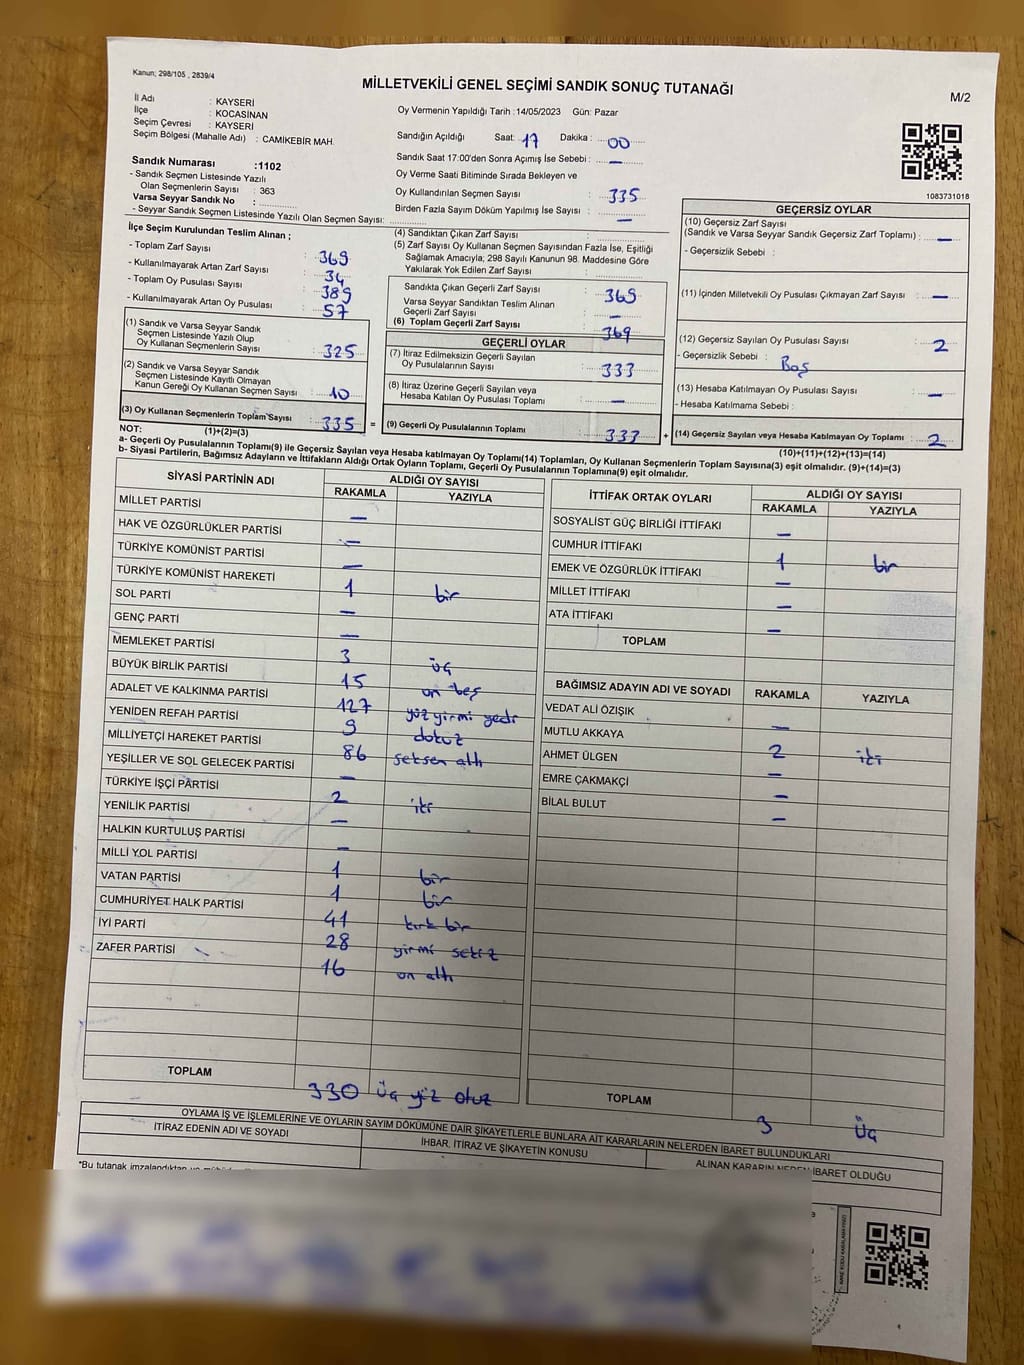 Kanun; 298/105 , 2839/4
MİLLETVEKİLİ GENEL SEÇİMİ SANDIK SONUÇ TUTANAĞI
M/2
İl Adı : KAYSERİ
İlçe : KOCASİNAN
Seçim Çevresi : KAYSERİ
Seçim Bölgesi (Mahalle Adı) : CAMİKEBİR MAH.
Sandık Numarası :1102
- Sandık Seçmen Listesinde Yazılı
Olan Seçmenlerin Sayısı : 363
Varsa Seyyar Sandık No :
- Seyyar Sandık Seçmen Listesinde Yazılı Olan Seçmen Sayısı:
Oy Vermenin Yapıldığı Tarih :14/05/2023 Gün: Pazar
Sandığın Açıldığı Saat: 17 Dakika : 00
Sandık Saat 17:00'den Sonra Açımış İse Sebebi : —
Oy Verme Saati Bitiminde Sırada Bekleyen ve
Oy Kullandırılan Seçmen Sayısı : 335
Birden Fazla Sayım Döküm Yapılmış İse Sayısı : —
1083731018
İlçe Seçim Kurulundan Teslim Alınan ;
- Toplam Zarf Sayısı : 369
- Kullanılmayarak Artan Zarf Sayısı : 34
- Toplam Oy Pusulası Sayısı : 389
- Kullanılmayarak Artan Oy Pusulası : 57
(1) Sandık ve Varsa Seyyar Sandık
Seçmen Listesinde Yazılı Olup
Oy Kullanan Seçmenlerin Sayısı : 325
(2) Sandık ve Varsa Seyyar Sandık
Seçmen Listesinde Kayıtlı Olmayan
Kanun Gereği Oy Kullanan Seçmen Sayısı : 10
(3) Oy Kullanan Seçmenlerin Toplam Sayısı : 335 =
(4) Sandıktan Çıkan Zarf Sayısı :
(5) Zarf Sayısı Oy Kullanan Seçmen Sayısından Fazla İse, Eşitliği
Sağlamak Amacıyla; 298 Sayılı Kanunun 98. Maddesine Göre
Yakılarak Yok Edilen Zarf Sayısı :
Sandıkta Çıkan Geçerli Zarf Sayısı : 369
Varsa Seyyar Sandıktan Teslim Alınan
Geçerli Zarf Sayısı : —
(6) Toplam Geçerli Zarf Sayısı : 369
GEÇERLİ OYLAR
(7) İtiraz Edilmeksizin Geçerli Sayılan
Oy Pusulalarının Sayısı : 333
(8) İtiraz Üzerine Geçerli Sayılan veya
Hesaba Katılan Oy Pusulası Toplamı : —
(9) Geçerli Oy Pusulalarının Toplamı : 333 +
GEÇERSİZ OYLAR
(10) Geçersiz Zarf Sayısı
(Sandık ve Varsa Seyyar Sandık Geçersiz Zarf Toplamı) : —
- Geçersizlik Sebebi :
(11) İçinden Milletvekili Oy Pusulası Çıkmayan Zarf Sayısı : —
(12) Geçersiz Sayılan Oy Pusulası Sayısı : 2
- Geçersizlik Sebebi : Boş
(13) Hesaba Katılmayan Oy Pusulası Sayısı : —
- Hesaba Katılmama Sebebi :
(14) Geçersiz Sayılan veya Hesaba Katılmayan Oy Toplamı : 2
NOT: (1)+(2)=(3)
(10)+(11)+(12)+(13)=(14)
a- Geçerli Oy Pusulalarının Toplamı(9) ile Geçersiz Sayılan veya Hesaba katılmayan Oy Pusulası Toplamı(14) Toplamları, Oy Kullanan Seçmenlerin Toplam Sayısına(3) eşit olmalıdır. (9)+(14)=(3)
b- Siyasi Partilerin, Bağımsız Adayların ve İttifakların Aldığı Ortak Oyların Toplamı, Geçerli Oy Pusulalarının Toplamına(9) eşit olmalıdır.
SİYASİ PARTİNİN ADI ALDIĞI OY SAYISI
RAKAMLA YAZIYLA
MİLLET PARTİSİ —
HAK VE ÖZGÜRLÜKLER PARTİSİ —
TÜRKİYE KOMÜNİST PARTİSİ —
TÜRKİYE KOMÜNİST HAREKETİ 1 bir
SOL PARTİ —
GENÇ PARTİ —
MEMLEKET PARTİSİ 3 üç
BÜYÜK BİRLİK PARTİSİ 15 on beş
ADALET VE KALKINMA PARTİSİ 127 yüz yirmi yedi
YENİDEN REFAH PARTİSİ 9 dokuz
MİLLİYETÇİ HAREKET PARTİSİ 86 seksen altı
YEŞİLLER VE SOL GELECEK PARTİSİ —
TÜRKİYE İŞÇİ PARTİSİ 2 iki
YENİLİK PARTİSİ —
HALKIN KURTULUŞ PARTİSİ —
MİLLİ YOL PARTİSİ 1 bir
VATAN PARTİSİ 1 bir
CUMHURİYET HALK PARTİSİ 41 kırk bir
İYİ PARTİ 28 yirmi sekiz
ZAFER PARTİSİ 16 on altı
TOPLAM 330 üç yüz otuz
İTTİFAK ORTAK OYLARI ALDIĞI OY SAYISI
RAKAMLA YAZIYLA
SOSYALİST GÜÇ BİRLİĞİ İTTİFAKI —
CUMHUR İTTİFAKI 1 bir
EMEK VE ÖZGÜRLÜK İTTİFAKI —
MİLLET İTTİFAKI —
ATA İTTİFAKI —
TOPLAM
BAĞIMSIZ ADAYIN ADI VE SOYADI RAKAMLA YAZIYLA
VEDAT ALİ ÖZIŞIK —
MUTLU AKKAYA 2 iki
AHMET ÜLGEN —
EMRE ÇAKMAKÇİ —
BİLAL BULUT —
TOPLAM 3 üç
OYLAMA İŞ VE İŞLEMLERİNE VE OYLARIN SAYIM DÖKÜMÜNE DAİR ŞİKAYETLERLE BUNLARA AİT KARARLARIN NELERDEN İBARET BULUNDUKLARI
İTİRAZ EDENİN ADI VE SOYADI İHBAR, İTİRAZ VE ŞİKAYETİN KONUSU ALINAN KARARIN NEDEN İBARET OLDUĞU
"Bu tutanak imzalandıktan